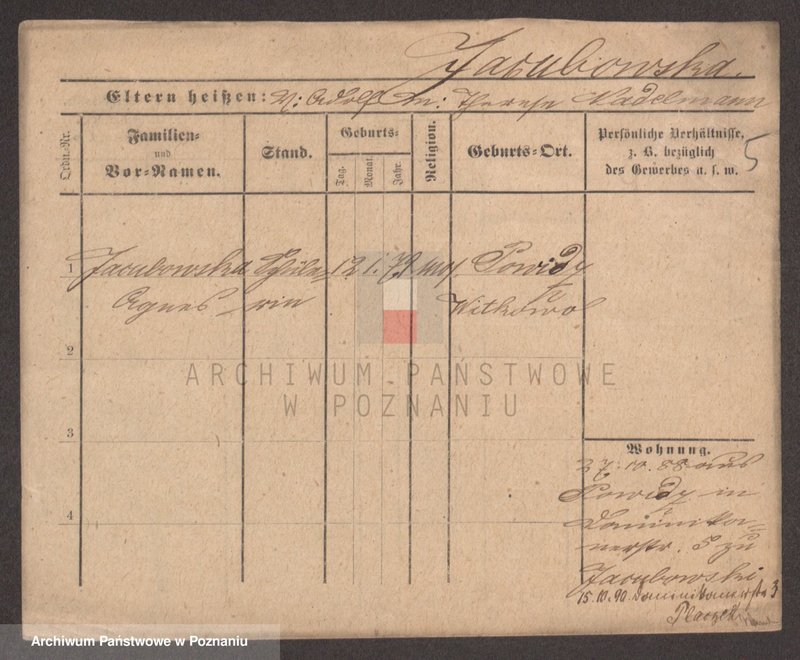 Jacubowska.
Eltern heißen: V: Adolf M: Therese Nadelmann
Ordn.-Nr.
Familien-
und
Vor-Namen.
Stand.
Geburts-
Tag.
Monat.
Jahr.
Religion.
Geburts-Ort.
Persönliche Verhältnisse,
z. B. bezüglich
des Gewerbes u. s. w.
5
1 Jacubowska Schüle- 12 1. 79 mos. Powidz
Agnes rin Witkowo
2
3
4
ARCHIWUM PAŃSTWOWE
W POZNANIU
Wohnung.
27.10.88 aus
Powidz in
Dominika-
nerstr. 5 zu
Jacubowski
15.10.90 Dominikanerstr 3
Placzek
Archiwum Państwowe w Poznaniu